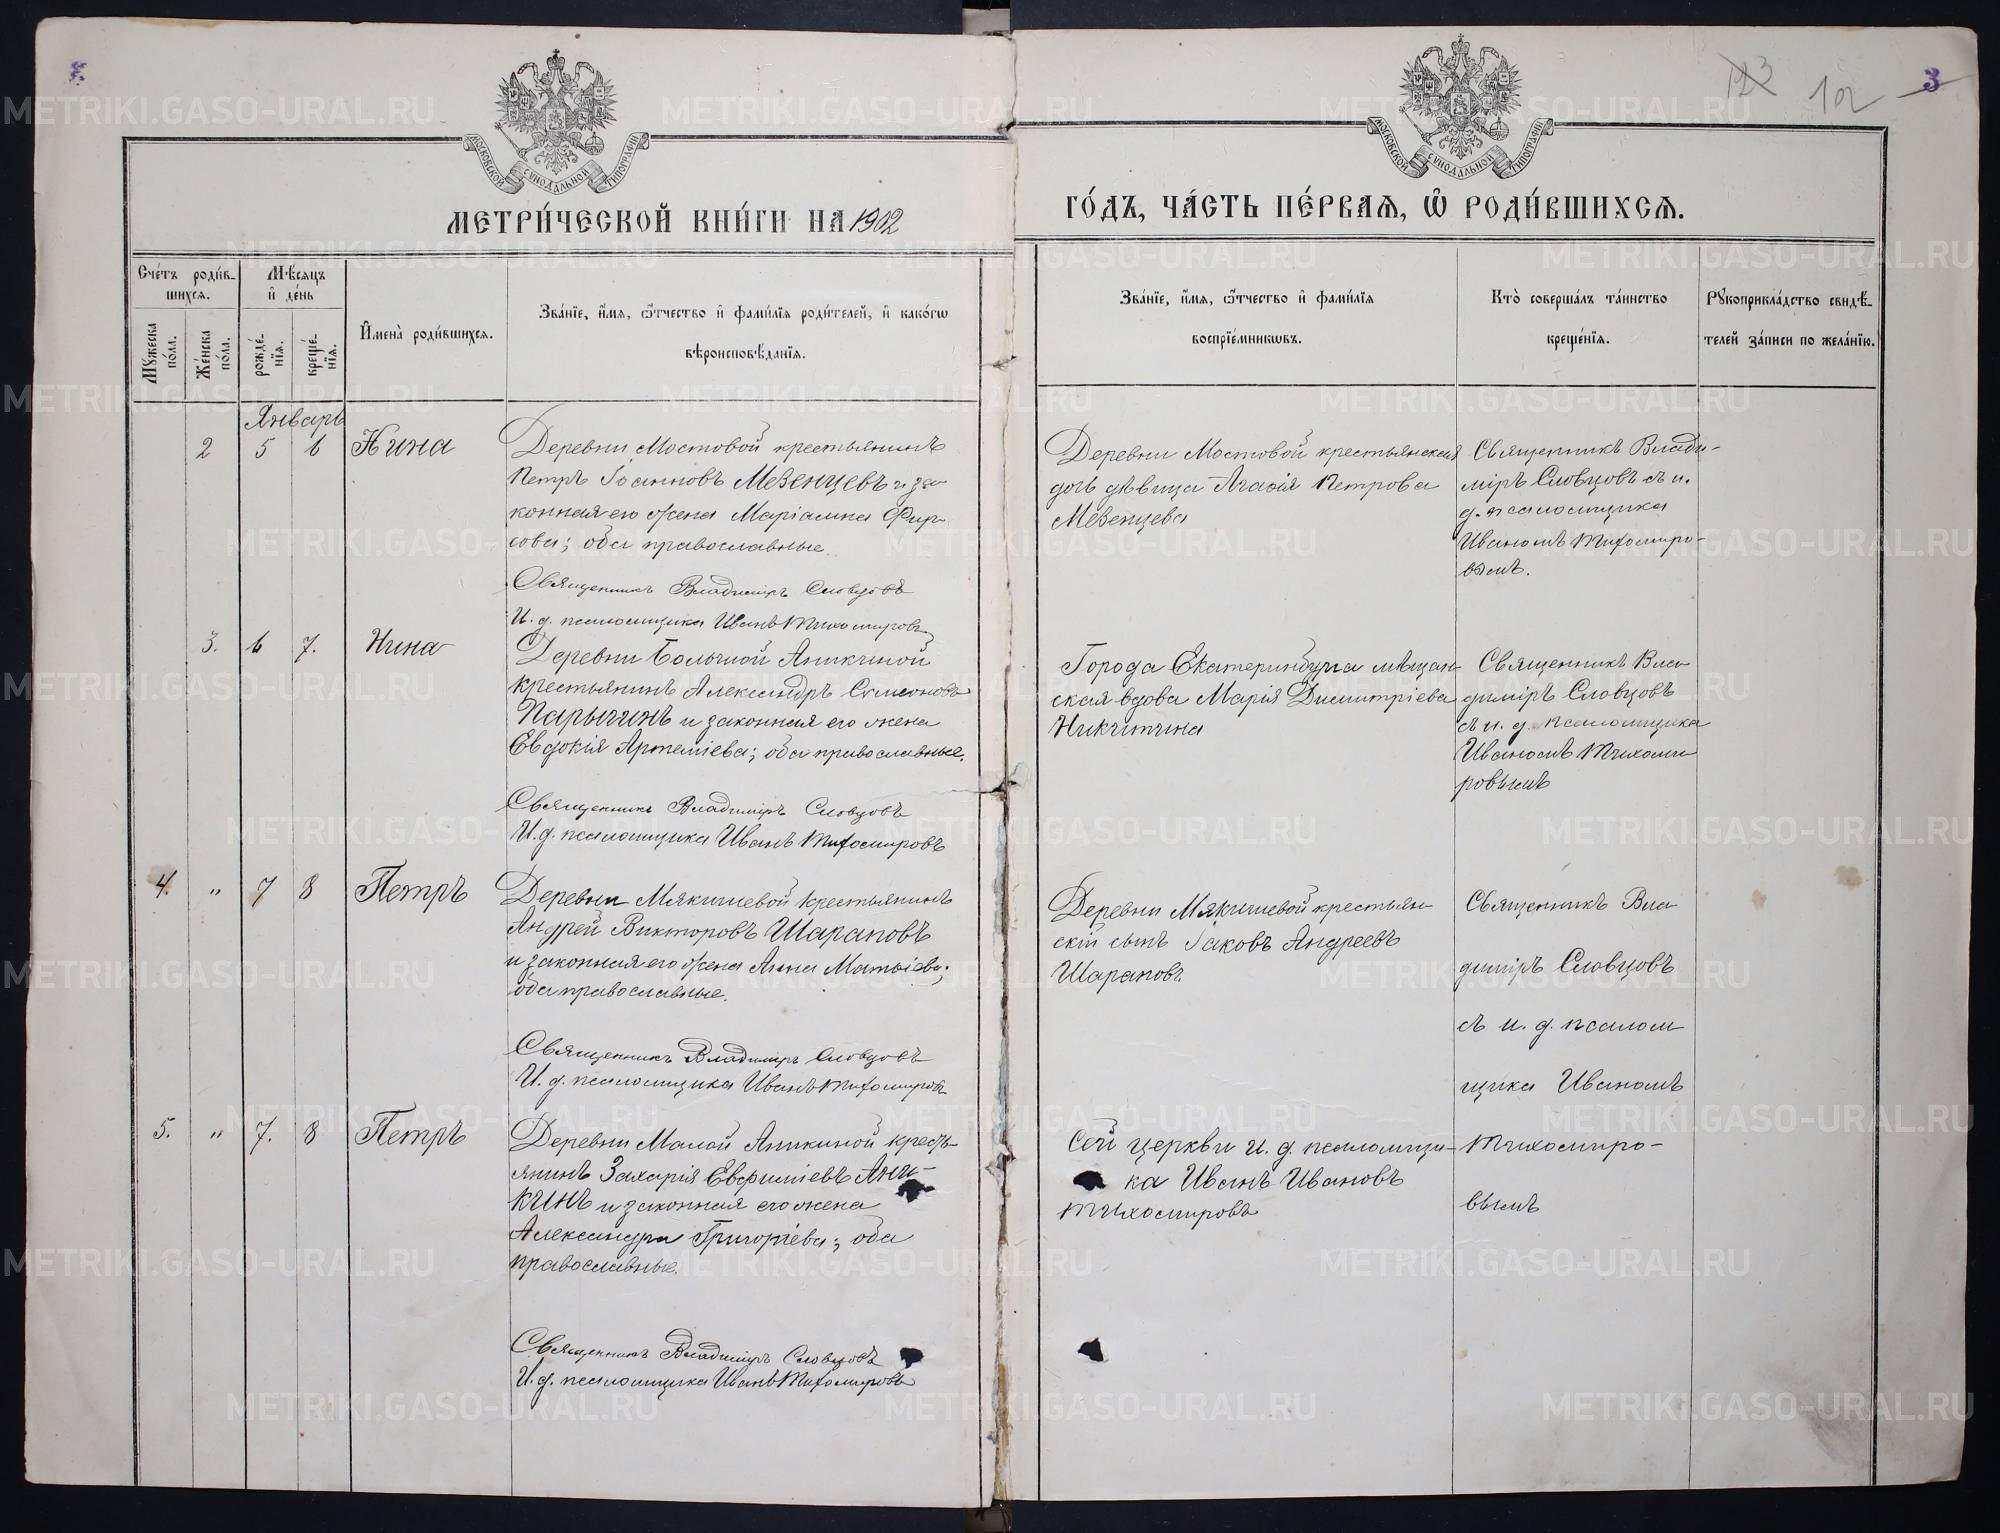 3
102
МОСКОВСКОЙ СѴНОДАЛЬНОЙ ТИПОГРАФІИ
МОСКОВСКОЙ СѴНОДАЛЬНОЙ ТИПОГРАФІИ
МЕТРИ́ЧЕСКОЙ КНИ́ГИ НА 1902
ГО́ДЪ, ЧА́СТЬ ПЕ́РВАѦ, Ѡ РОДИ́ВШИХСѦ.
Сче́тъ роди́в-
шихсѧ.
Мꙋ́жеска
по́ла.
Же́нска
по́ла.
Мѣ́сѧцъ
и де́нь
рожде́-
нїѧ.
креще́-
нїѧ.
Имена̀ роди́вшихсѧ.
Зва́нїе, и́мѧ, ѻ҆́тчество и фами́лїѧ роди́телей, и како́гѡ
вѣроисповѣ́данїѧ.
Зва́нїе, и́мѧ, ѻ҆́тчество и фами́лїѧ
воспрїе́мникѡвъ.
Кто̀ соверша́лъ та́инство
креще́нїѧ.
Рꙋкоприкла́дство свидѣ́-
телей за́писи по жела́нїю.
Январь
2 5 6 Нина
Деревни Мостовой крестьянинъ
Петръ Іоанновъ Мезенцевъ и за-
конная его жена Маріамна Фир-
сова; оба православные.
Священникъ Владиміръ Словцовъ
И. д. псаломщика Иванъ Тихомировъ
Деревни Мостовой крестьянская
дочь дѣвица Агафія Петрова
Мезенцева
Священникъ Влади-
міръ Словцовъ съ и.
д. псаломщика
Иваномъ Тихомиро-
вымъ.
3. 6 7. Нина
Деревни Большой Аникиной
крестьянинъ Александръ Симеоновъ
Парыгинъ и законная его жена
Евдокія Артеміева; оба православные.
Священникъ Владиміръ Словцовъ
И. д. псаломщика Иванъ Тихомировъ
Города Екатеринбурга мѣщан-
ская вдова Марія Димитріева
Никитина
Священникъ Вла-
диміръ Словцовъ
съ и. д. псаломщика
Иваномъ Тихоми-
ровымъ
4. " 7 8 Петръ
Деревни Мякишевой крестьянинъ
Андрей Викторовъ Шараповъ
и законная его жена Анна Матѳіева;
оба православные.
Священникъ Владиміръ Словцовъ
И. д. псаломщика Иванъ Тихомировъ
Деревни Мякишевой крестьян-
скій сынъ Іаковъ Андреевъ
Шараповъ
Священникъ Вла-
диміръ Словцовъ
съ и. д. псалом
щика Иваномъ
Тихомиро-
вымъ
5. " 7. 8 Петръ
Деревни Малой Аникиной кресть-
янинъ Захарія Евфиміевъ Ани-
кинъ и законная его жена
Александра Григоріева; оба
православные.
Священникъ Владиміръ Словцовъ
И. д. псаломщика Иванъ Тихомировъ
Сей церкви и. д. псаломщи-
ка Иванъ Ивановъ
Тихомировъ
METRIKI.GASO-URAL.RU